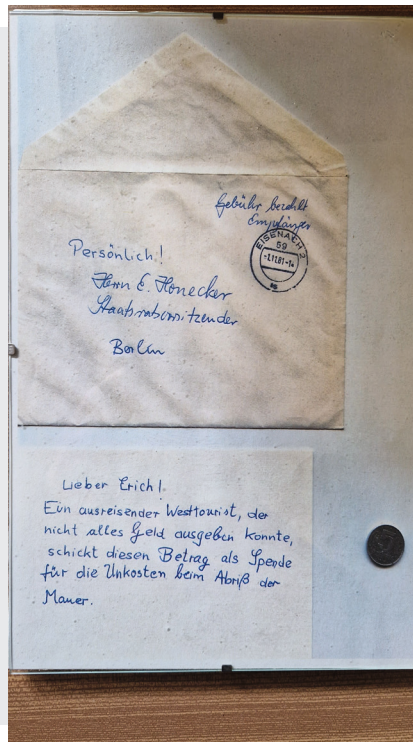 Gebühr bezahlt
Empfänger
EISENACH 2
59
Persönlich!
Herrn E. Honecker
Staatsratsvorsitzender
Berlin
Lieber Erich!
Ein ausreisender Westtourist, der
nicht alles Geld ausgeben konnte,
schickt diesen Betrag als Spende
für die Unkosten beim Abriß der
Mauer.